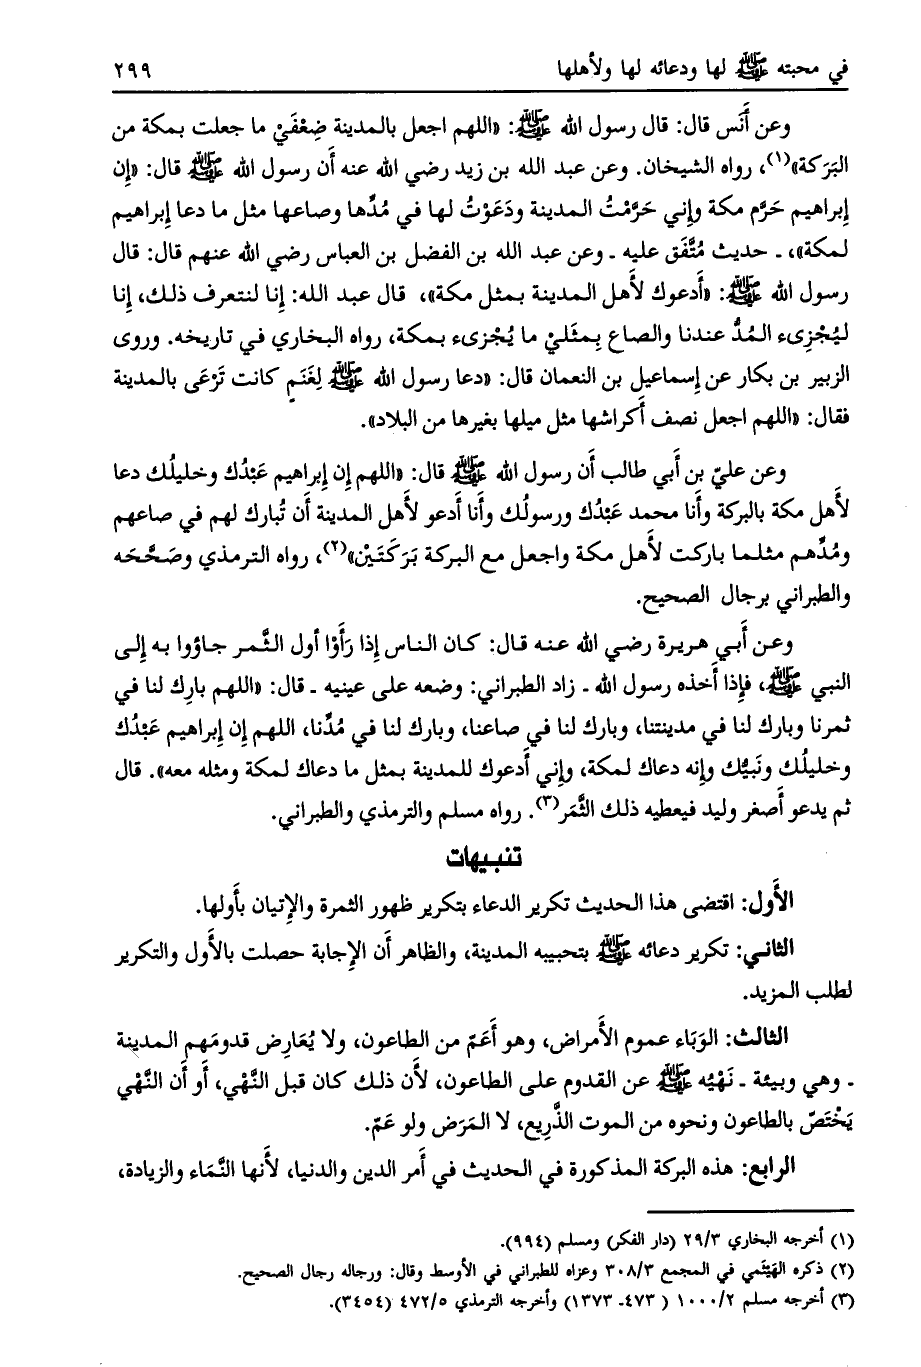 في محبته ﷺ لها ودعائه لها ولأهلها ٢٩٩
وعن أَنَس قال: قال رسول الله ﷺ: «اللهم اجعل بالمدينة ضِعْفَيْ ما جعلت بمكة من
البَرَكة»(١)، رواه الشيخان. وعن عبد الله بن زيد رضي الله عنه أن رسول الله ﷺ قال: «إن
إبراهيم حَرَّم مكة وإني حَرَّمْتُ المدينة ودَعَوْتُ لها في مُدِّها وصاعها مثل ما دعا إبراهيم
لمكة»، ـ حديث مُتَّفَق عليه ـ وعن عبد الله بن الفضل بن العباس رضي الله عنهم قال: قال
رسول الله ﷺ: «أَدعوك لأَهل المدينة بمثل مكة»، قال عبد الله: إِنا لنتعرف ذلك، إِنا
ليُجْزِىء المُدُّ عندنا والصاع بِمثَليْ ما يُجْزىء بمكة، رواه البخاري في تاريخه. وروى
الزبير بن بكار عن إسماعيل بن النعمان قال: «دعا رسول الله ﷺ لِغَنَمٍ كانت تَرْعَى بالمدينة
فقال: «اللهم اجعل نصف أَكراشها مثل ميلها بغيرها من البلاد».
وعن عليّ بن أَبي طالب أن رسول الله ﷺ قال: «اللهم إِن إِبراهيم عَبْدُك وخليلُك دعا
لأَهل مكة بالبركة وأَنا محمد عَبْدُك ورسولُك وأَنا أَدعو لأَهل المدينة أَن تُبارك لهم في صاعهم
ومُدِّهم مثلما باركت لأَهل مكة واجعل مع البركة بَرَكَتَيْن»(٢)، رواه الترمذي وصَحَّحَه
والطبراني برجال الصحيح.
وعن أَبي هريرة رضي الله عنه قال: كان الناس إِذا رَأَوْا أول الثَّمر جاؤوا به إِلى
النبي ﷺ، فإِذا أَخذه رسول الله ـ زاد الطبراني: وضعه على عينيه ـ قال: «اللهم بارِك لنا في
ثمرنا وبارك لنا في مدينتنا، وبارك لنا في صاعنا، وبارك لنا في مُدِّنا، اللهم إِن إِبراهيم عَبْدُك
وخليلُك ونَبيُّك وإِنه دعاك لمكة، وإِني أَدعوك للمدينة بمثل ما دعاك لمكة ومثله معه». قال
ثم يدعو أَصغر وليد فيعطيه ذلك الثَّمَر(٣). رواه مسلم والترمذي والطبراني.
تنبيهات
الأَول: اقتضى هذا الحديث تكرير الدعاء بتكرير ظهور الثمرة والإِتيان بأَولها.
الثاني: تكرير دعائه ﷺ بتحبيبه المدينة، والظاهر أَن الإِجابة حصلت بالأَول والتكرير
لطلب المزيد.
الثالث: الوَبَاء عموم الأَمراض، وهو أَعَمّ من الطاعون، ولا يُعَارِض قدومَهم المدينة
ـ وهي وبيئة ـ نَهْيُه ﷺ عن القدوم على الطاعون، لأَن ذلك كان قبل النَّهْي، أَو أَن النَّهْي
يَخْتَصّ بالطاعون ونحوه من الموت الذَّرِيع، لا المَرَض ولو عَمّ.
الرابع: هذه البركة المذكورة في الحديث في أَمر الدين والدنيا، لأَنها النَّمَاء والزيادة،
(١) أخرجه البخاري ٢٩/٣ (دار الفكر) ومسلم (٩٩٤).
(٢) ذكره الهَيْثَمي في المجمع ٣٠٨/٣ وعزاه للطبراني في الأوسط وقال: ورجاله رجال الصحيح.
(٣) أخرجه مسلم ١٠٠٠/٢ ( ٤٧٣ـ ١٣٧٣) وأخرجه الترمذي ٤٧٢/٥ (٣٤٥٤).